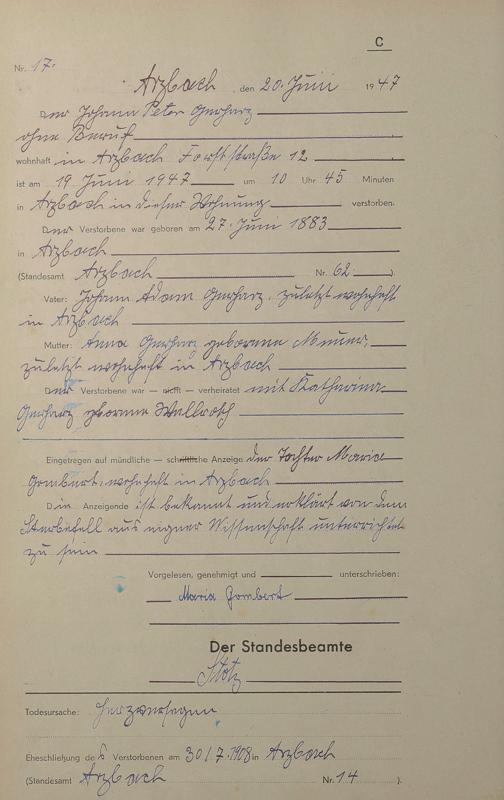 C
Nr. 17.
Arzbach, den 20. Juni 1947
Der Johann Peter Gerharz
ohne Beruf
wohnhaft in Arzbach Forststraße 12
ist am 19 Juni 1947 um 10 Uhr 45 Minuten
in Arzbach in dieser Wohnung verstorben.
Der Verstorbene war geboren am 27. Juni 1883
in Arzbach
(Standesamt Arzbach Nr. 62).
Vater: Johann Adam Gerharz, zuletzt wohnhaft
in Arzbach
Mutter: Anna Gerharz geborene
zuletzt wohnhaft in Arzbach
Der Verstorbene war — nicht — verheiratet mit Katharina
Gerharz geborene
Eingetragen auf mündliche — schriftliche Anzeige der Tochter Maria
Gombert, wohnhaft in Arzbach
Die Anzeigende ist bekannt und erklärt von dem
Sterbefall aus eigner Wissenschaft unterrichtet
zu sein
Vorgelesen, genehmigt und unterschrieben:
Maria Gombert
Der Standesbeamte
Stotz
Todesursache: Herzversagen
Eheschließung des Verstorbenen am 30.7.1908 in Arzbach
(Standesamt Arzbach Nr. 14).